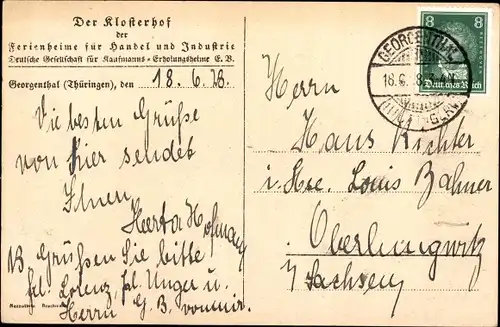 Der Klosterhof
der
Ferienheime für Handel und Industrie
Deutsche Gesellschaft für Kaufmanns-Erholungsheime E.V.
Georgenthal (Thüringen), den 18.6.28
Die besten Grüße
von hier sendet
Ihnen
Herta Hofmann
NB Grüßen Sie bitte
frl. Lorenz, frl. Unger u.
Herrn G. B. von mir.
8 8
Deutsches Reich
GEORGENTHAL
18.6.28
Herrn
Hans Richter
i. Hse. Louis Bahner
Oberlungwitz
i/Sachsen